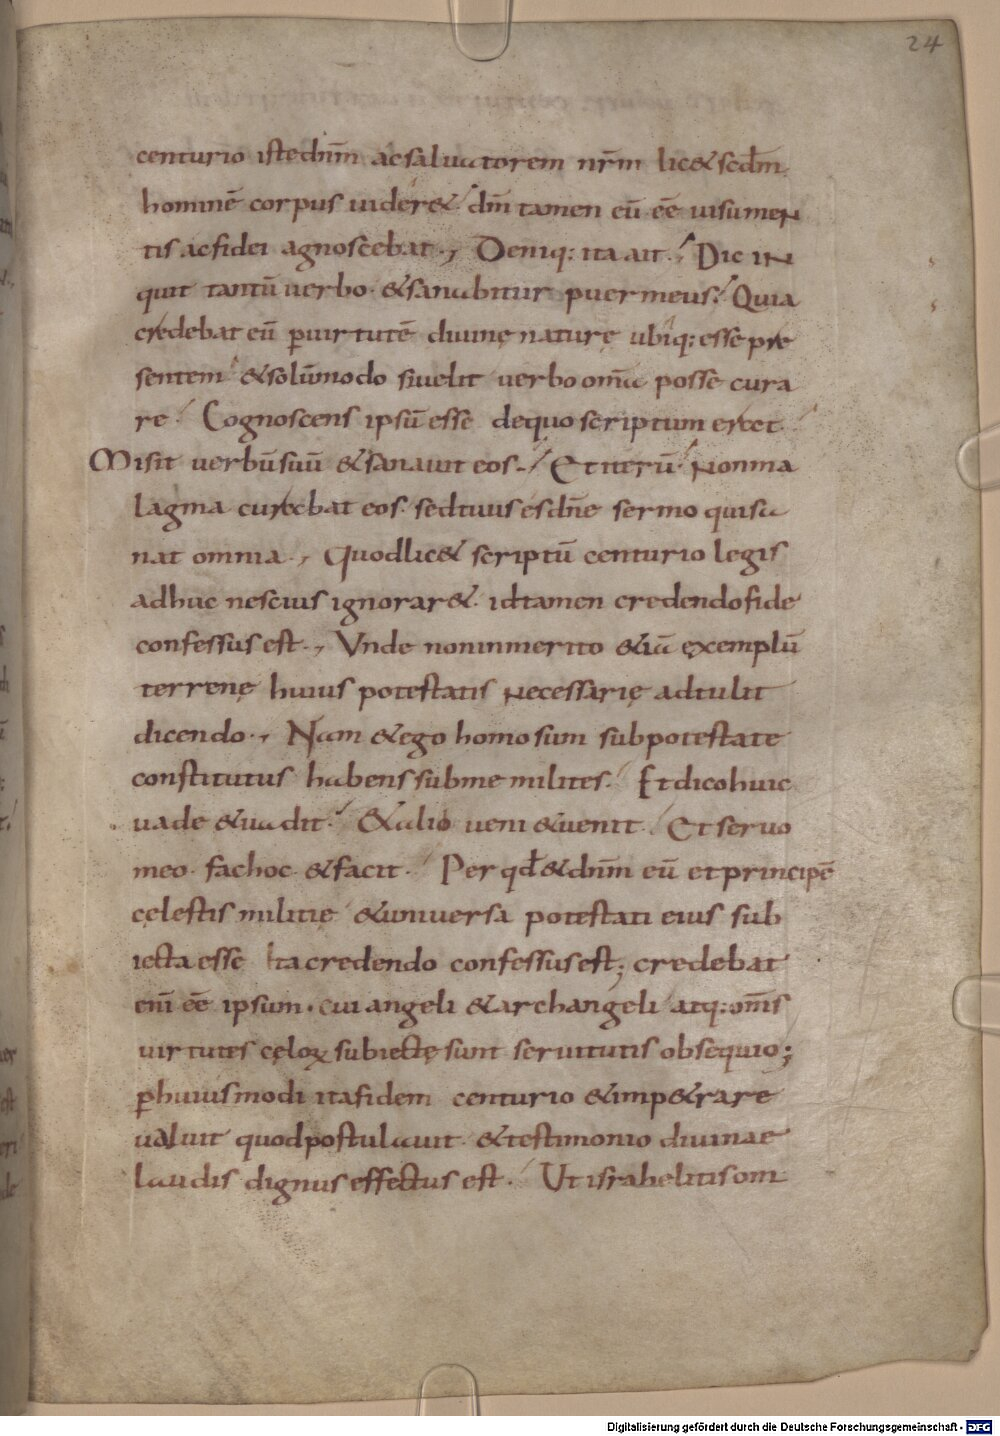 24
centurio iste dnm̄ ac saluatorem nr̄m lic& scdm̄
hominē corpus uider& dm̄ tamen eū eē uisu men
tis ac fidei agnoscebat., Deniq; ita ait., Dic in
quit tantū uerbo. & sanabitur puer meus. Quia
credebat eū ꝑ uirtutē diuinę naturę ubiq; esse pre
sentem & solūmodo si uelit uerbo omīa posse cura
re. Cognoscens ipsū esse de quo scriptum erat.
Misit uerbū suū & sanauit eos., Et iterū. Non ma
lagma curabat eos. sed tuus es dn̄e sermo qui sa
nat omnia., Quod lic& scriptū centurio legis
adhuc nescius ignorar&. id tamen credendo fide
confessus est., Vnde non inmerito &iā exemplū
terrenę huius potestatis necessarię adtulit
dicendo., Nam & ego homo sum sub potestate
constitutus habens sub me milites. Et dico huic
uade & uadit. & alio ueni & uenit. Et seruo
meo. fac hoc & facit. Per qd̄ & dnm̄ eū et principē
cęlestis militię & uniuersa potestati eius sub
iecta esse ita credendo confessus est; credebat
enī eē ipsum. cui angeli & archangeli atq; om̄s
uirtutes cęloꝝ subiectę sunt seruitutis obsequio;
ꝑ huiusmodi ita fidem centurio & imp&rare
ualuit quod postulauit & testimonio diuinae
laudis dignus effectus est. Ut israhelitis om
Digitalisierung gefördert durch die Deutsche Forschungsgemeinschaft - DFG